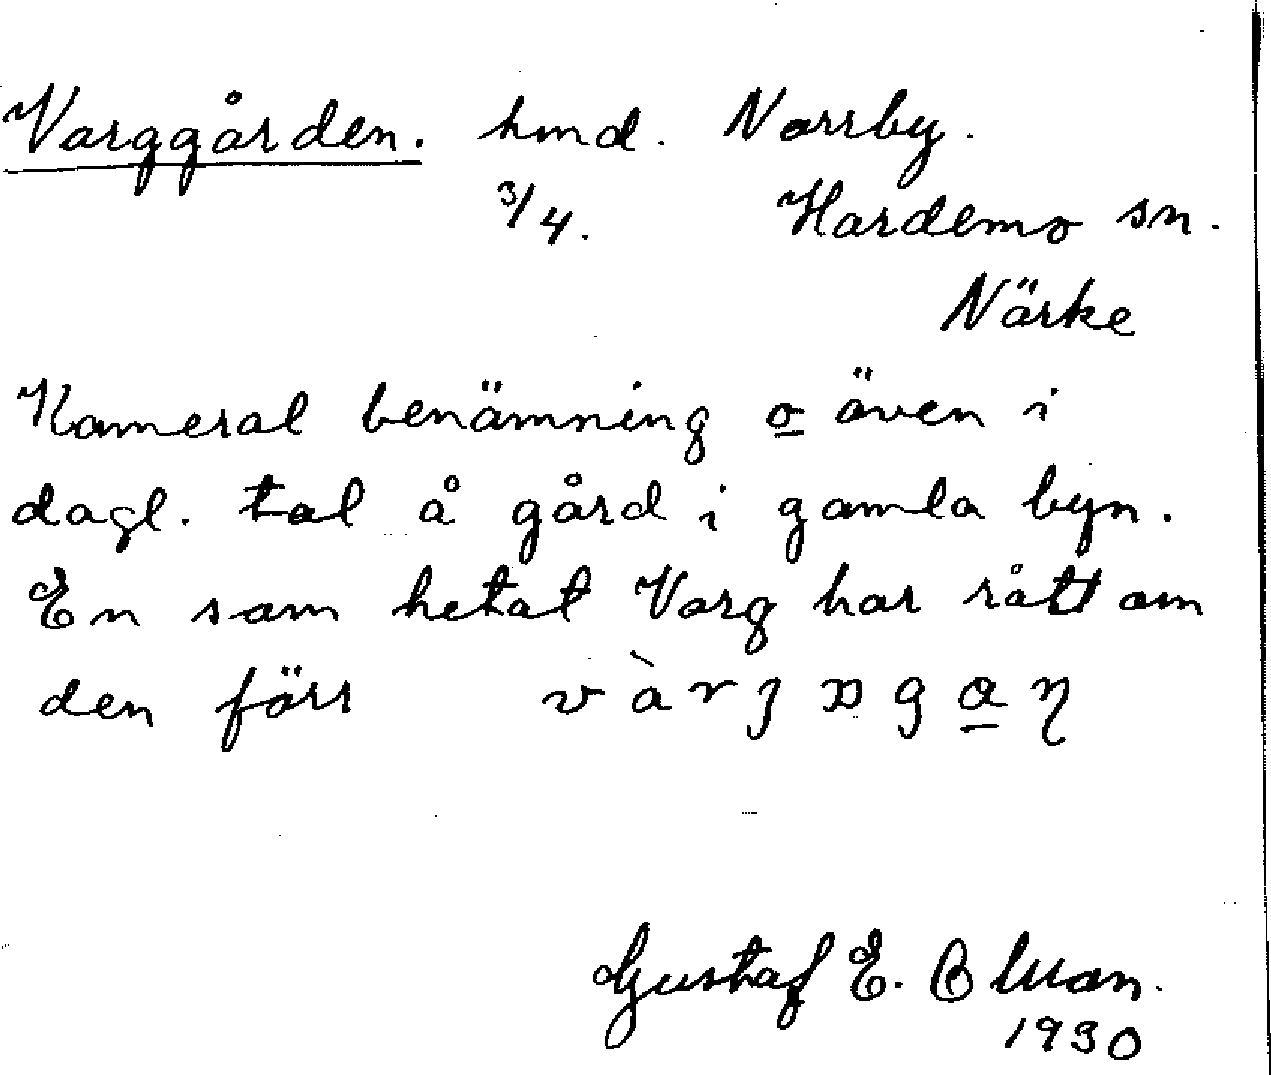 Varggården. hmd. Norrby.
3/4. Hardemo sn.
Närke
Kameral benämning o även i
dagl. tal å gård i gamla byn.
En som hetat Varg har rått om
den förr
Gustaf E.
1930